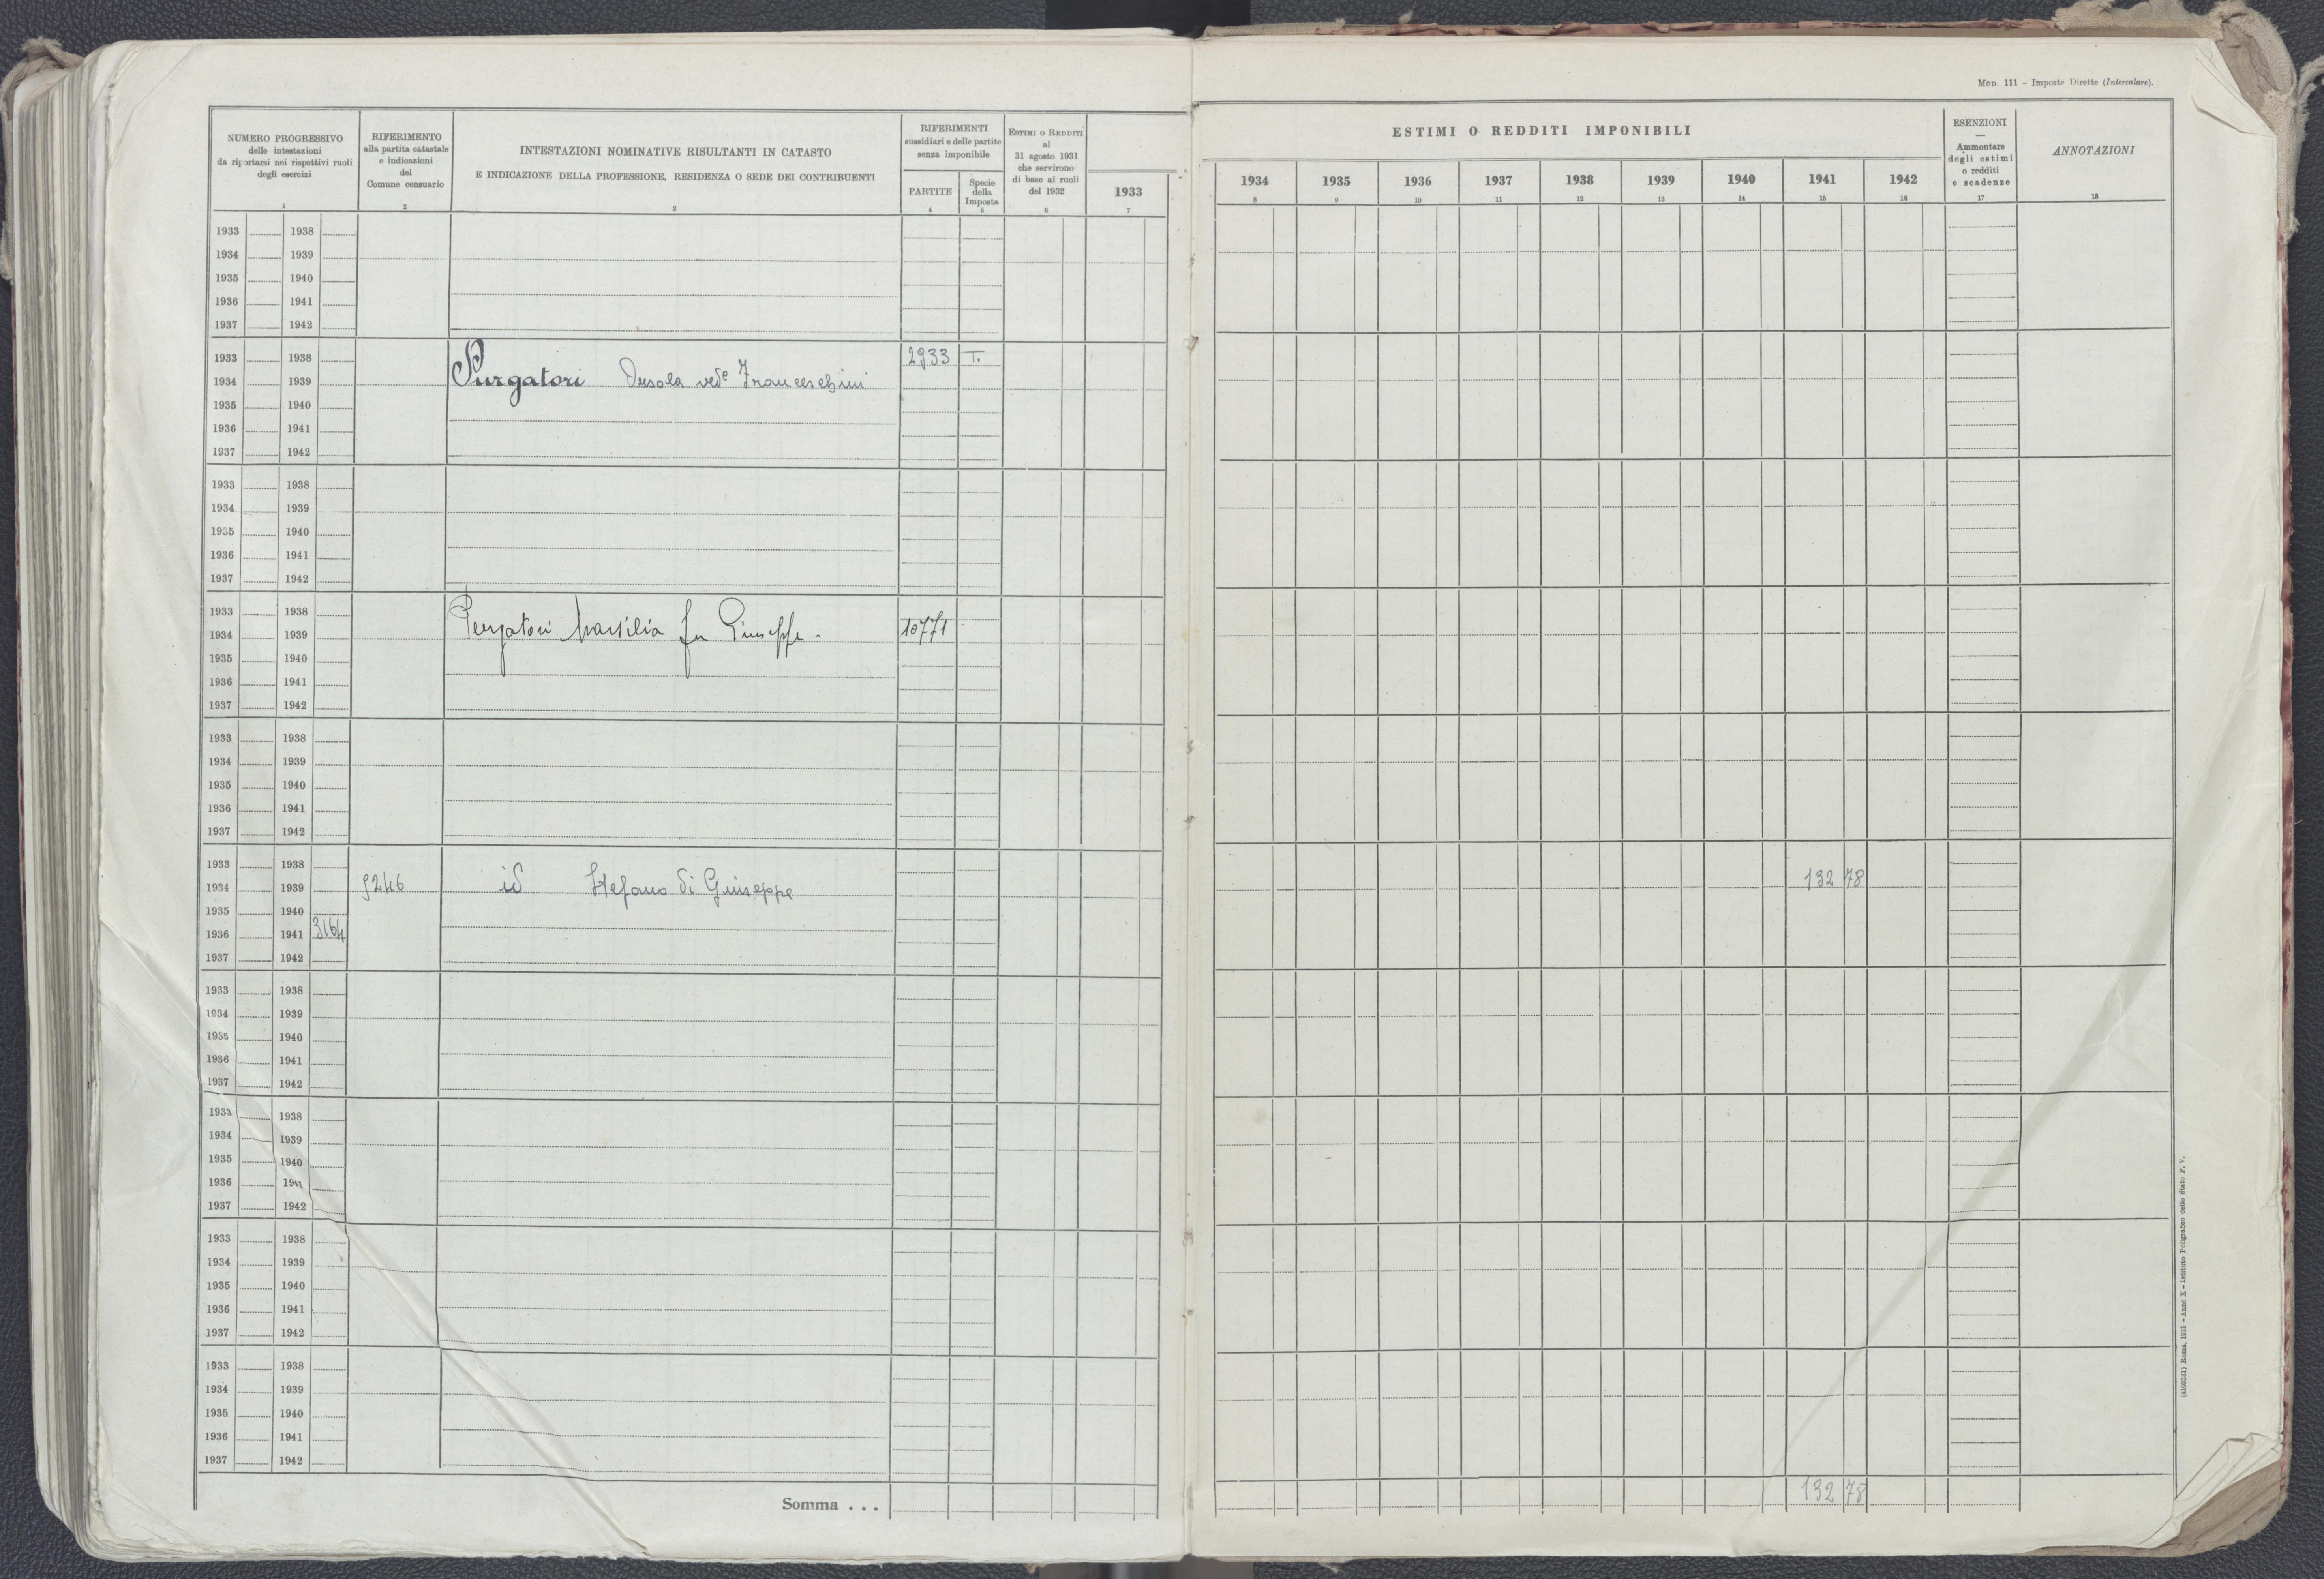 Mod. 111 – Imposte Dirette (Intercalare).
NUMERO PROGRESSIVO
delle intestazioni
da riportarsi nei rispettivi ruoli
degli esercizi
1
RIFERIMENTO
alla partita catastale
e indicazioni
del
Comune censuario
2
INTESTAZIONI NOMINATIVE RISULTANTI IN CATASTO
E INDICAZIONE DELLA PROFESSIONE, RESIDENZA O SEDE DEI CONTRIBUENTI
3
RIFERIMENTI
sussidiari e delle partite
senza imponibile
PARTITE
4
Specie
della
Imposta
5
Estimi o Redditi
al
31 agosto 1931
che servirono
di base ai ruoli
del 1932
6
1933
7
ESTIMI O REDDITI IMPONIBILI
1934 1935 1936 1937 1938 1939 1940 1941 1942
8 9 10 11 12 13 14 15 16
ESENZIONI
—
Ammontare
degli estimi
o redditi
e scadenze
17
ANNOTAZIONI
18
1933 1938
1934 1939
1935 1940
1936 1941
1937 1942
1933 1938 2933 T.
1934 1939 Purgatori Orsola ved. Franceschini
1935 1940
1936 1941
1937 1942
1933 1938
1934 1939
1935 1940
1936 1941
1937 1942
1933 1938
1934 1939 Purgatori Marsilia fu Giuseppe. 10771
1935 1940
1936 1941
1937 1942
1933 1938
1934 1939
1935 1940
1936 1941
1937 1942
1933 1938
1934 1939 9246 id Stefano di Giuseppe 132 78
1935 1940
1936 1941 3164
1937 1942
1933 1938
1934 1939
1935 1940
1936 1941
1937 1942
1933 1938
1934 1939
1935 1940
1936 1941
1937 1942
1933 1938
1934 1939
1935 1940
1936 1941
1937 1942
1933 1938
1934 1939
1935 1940
1936 1941
1937 1942
Somma . . . 132 78
Roma, 1931 – Anno X – Istituto Poligrafico dello Stato P. V.